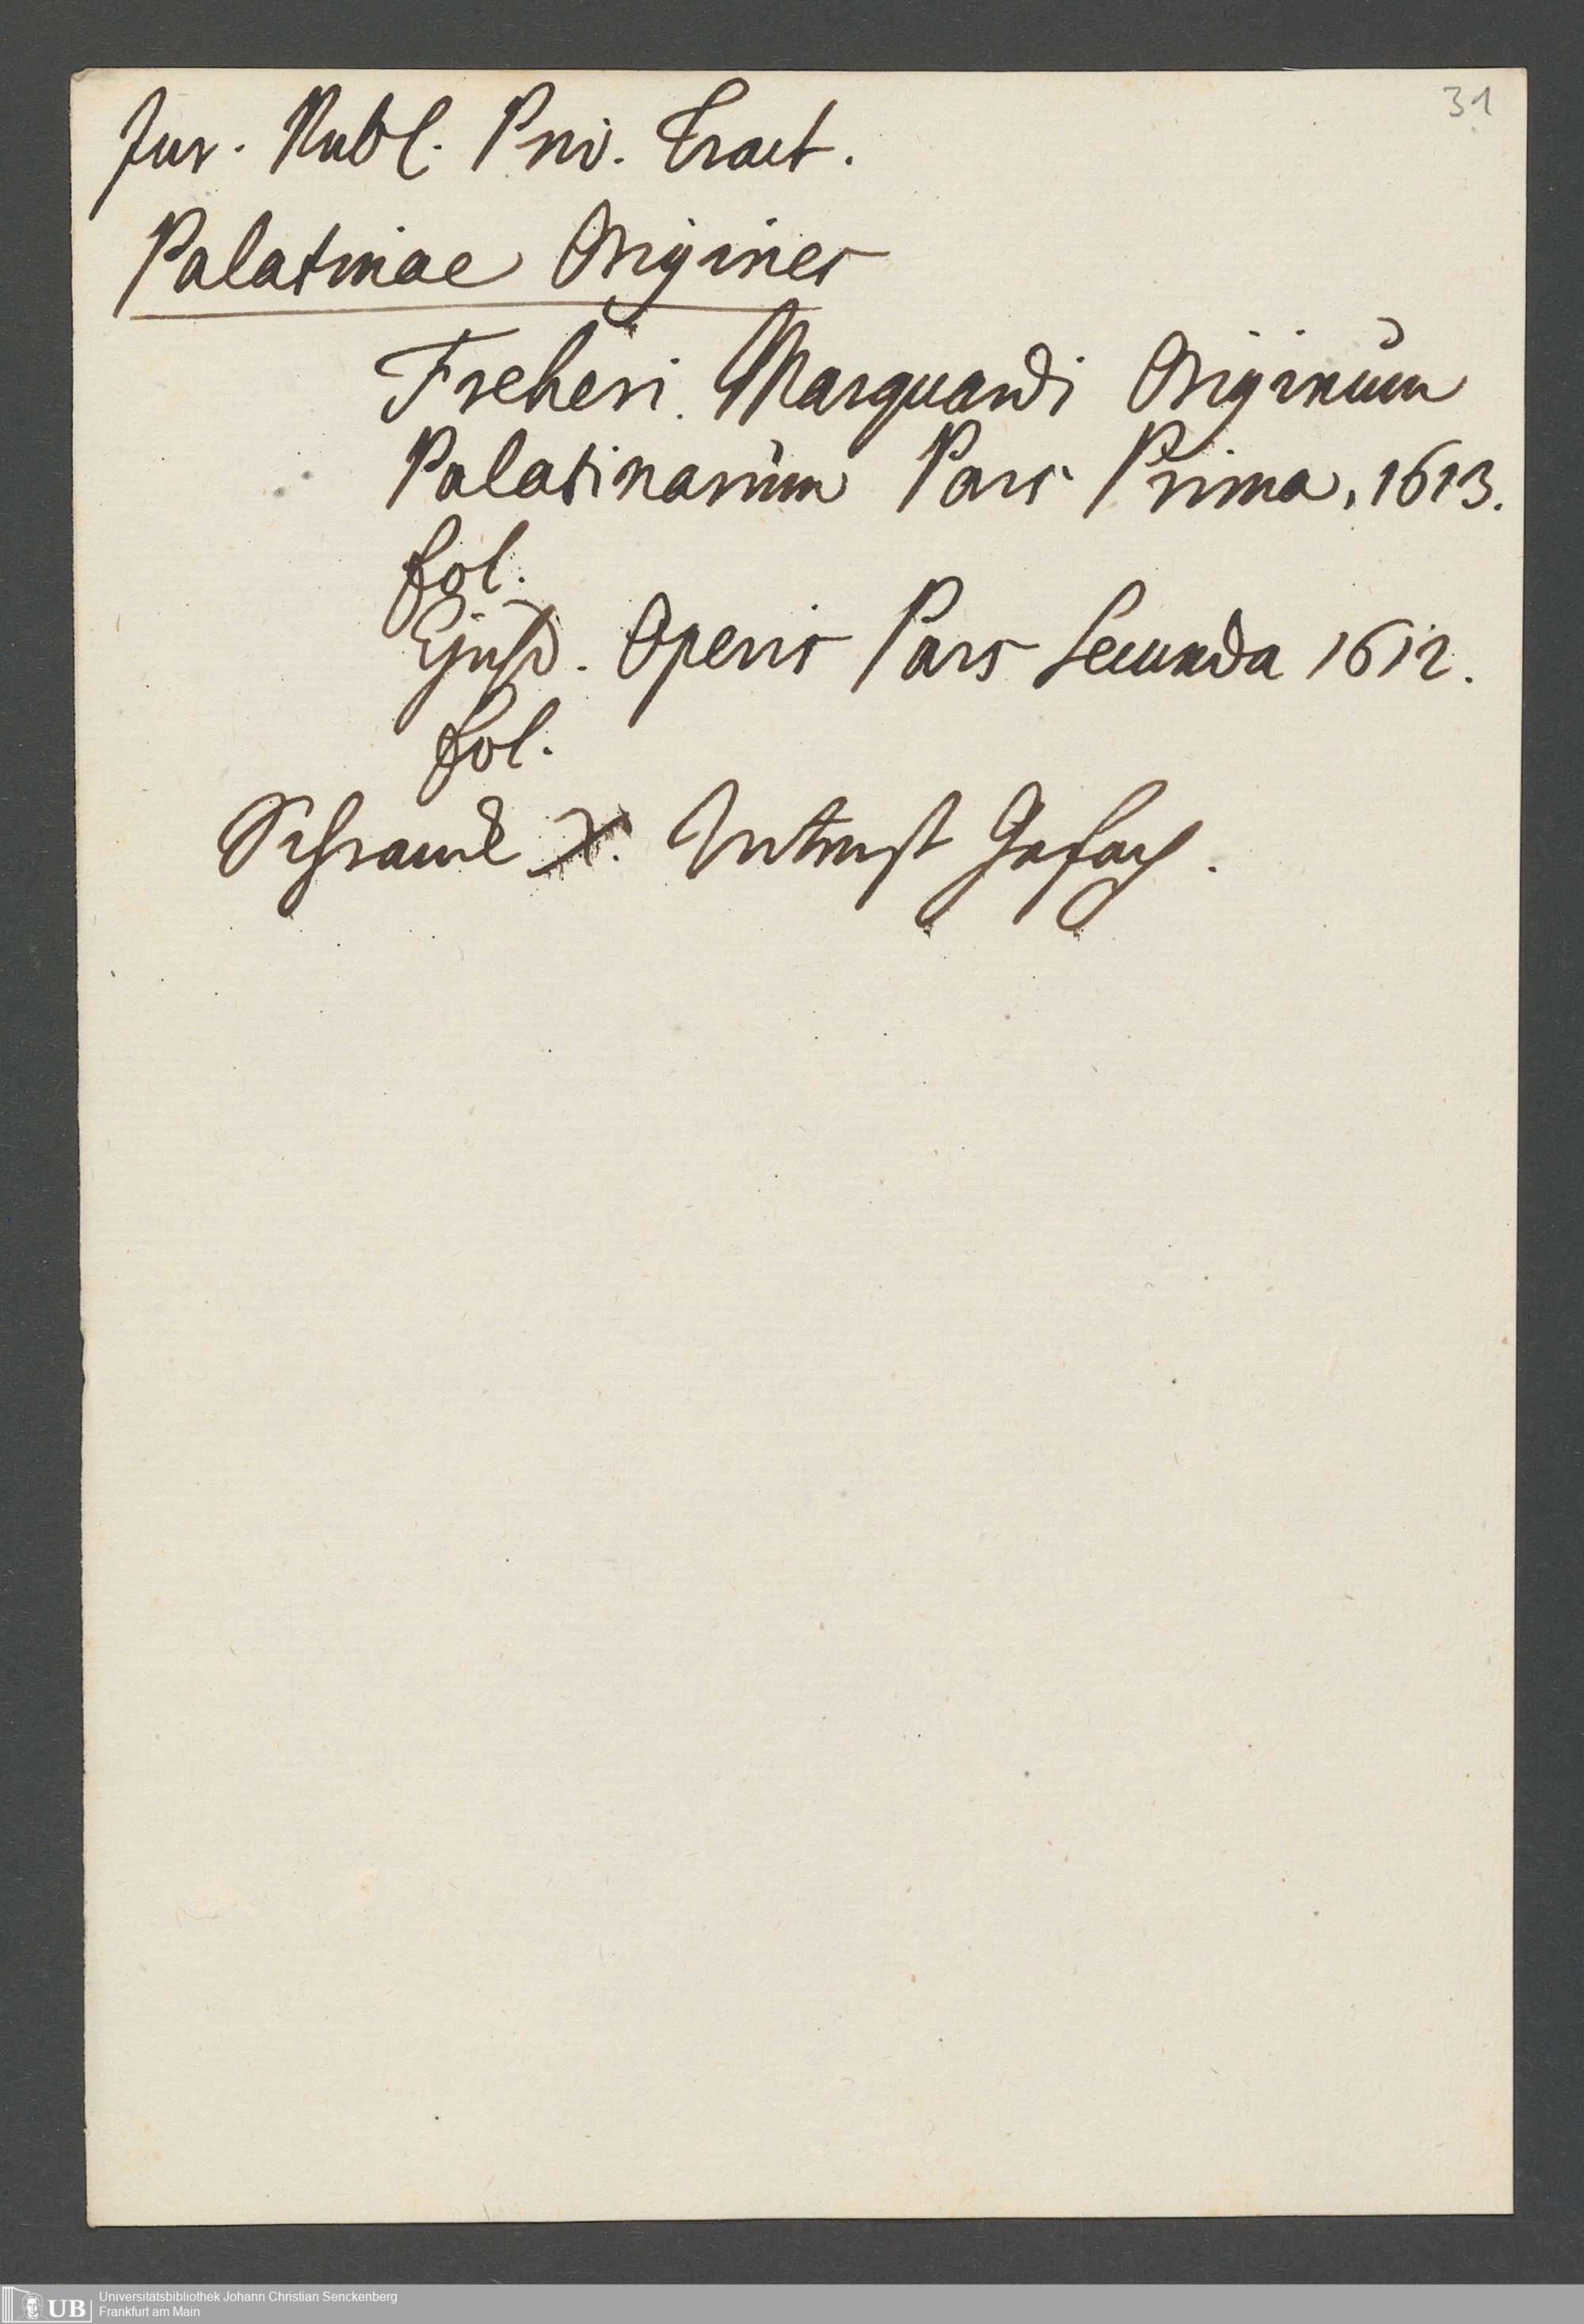 31
Jur. Publ. Priv. Tract.
Palatinae Origines
Freheri. Marquardi Originum
Palatinarum Pars Prima. 1613.
fol.
Ejusd. Operis Pars Secunda 1612.
fol.
Schranck X. Unterst Gefach.
UB Universitätsbibliothek Johann Christian Senckenberg
Frankfurt am Main